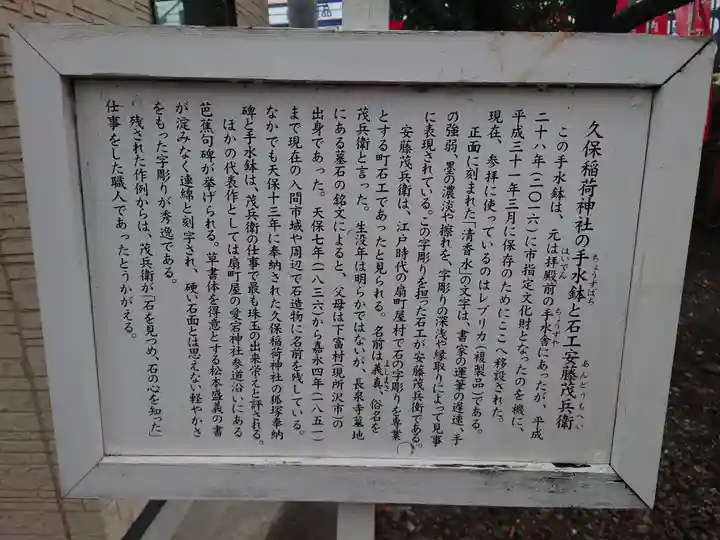 久保稲荷神社の手水鉢と石工・安藤茂兵衛
ちょうずばち
あんどうもへい
この手水鉢は、元は拝殿前の手水舎にあったが、平成
はいでん
ちょうずや
二十八年(二〇一六)に市指定文化財となったのを機に、
平成三十一年三月に保存のためにここへ移設された。
現在、参拝に使っているのはレプリカ(複製品)である。
正面に刻まれた「清香水」の文字は、書家の運筆の遅速、手
の強弱、墨の濃淡や擦れを、字彫りの深浅や縁取りによって見事
に表現されている。この字彫りを担った石工が安藤茂兵衛である。
安藤茂兵衛は、江戸時代の扇町屋村で石の字彫りを専業
とする町石工であったと見られる。名前は義真、俗名を
よしまさ
茂兵衛と言った。生没年は明らかではないが、長泉寺墓地
にある墓石の銘文によると、父母は下富村(現所沢市)の
出身であった。天保七年(一八三六)から嘉永四年(一八五一)
まで現在の入間市域や周辺で石造物に名前を残している。
なかでも天保十三年に奉納された久保稲荷神社の狐塚奉納
碑と手水鉢は、茂兵衛の仕事で最も珠玉の出来栄えと評される。
ほかの代表作としては扇町屋の愛宕神社参道沿いにある
芭蕉句碑が挙げられる。草書体を得意とする松本盛義の書
が淀みなく連綿と刻字され、硬い石面とは思えない軽やかさ
をもった字彫りが秀逸である。
残された作例からは、茂兵衛が「石を見つめ、石の心を知った」
仕事をした職人であったとうかがえる。